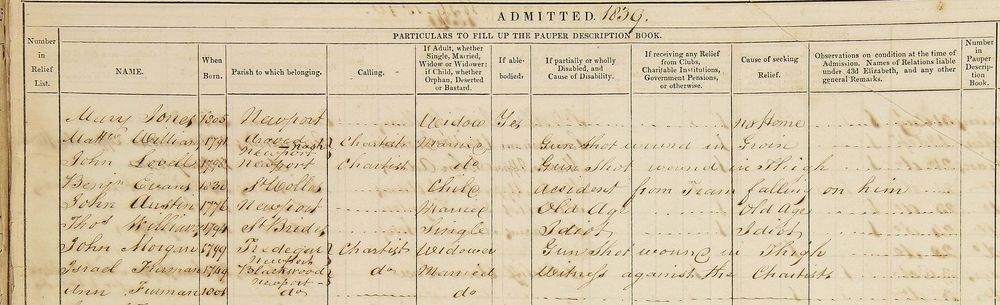 ADMITTED. 1839.
PARTICULARS TO FILL UP THE PAUPER DESCRIPTION BOOK.
Number in Relief List.
NAME.
When Born.
Parish to which belonging.
Calling.
If Adult, whether Single, Married, Widow or Widower: if Child, whether Orphan, Deserted or Bastard.
If able-bodied:
If partially or wholly Disabled, and Cause of Disability.
If receiving any Relief from Clubs, Charitable Institutions, Government Pensions, or otherwise.
Cause of seeking Relief.
Observations on condition at the time of Admission. Names of Relations liable under 43d Elizabeth, and any other general Remarks.
Number in Pauper Description Book.
Mary Jones 1805 Newport Widow Yes no Home
Matt William 1791 Newport Chartist Married Gun Shot wound in Groin
John Newport Chartist do Gun Shot wound in Thigh
Benjn Evans St Child Accident from Tram falling on him
John Austin 1776 Newport Married Old Age Old Age
Thos Williams 1794 St Brides Single Idiot Idiot
John Morgan Tredegar Newport Chartist Widower Gun Shot wound in Thigh
Israel Firman Blackwood Newport do Married Witness against the Chartists
Ann Firman do do